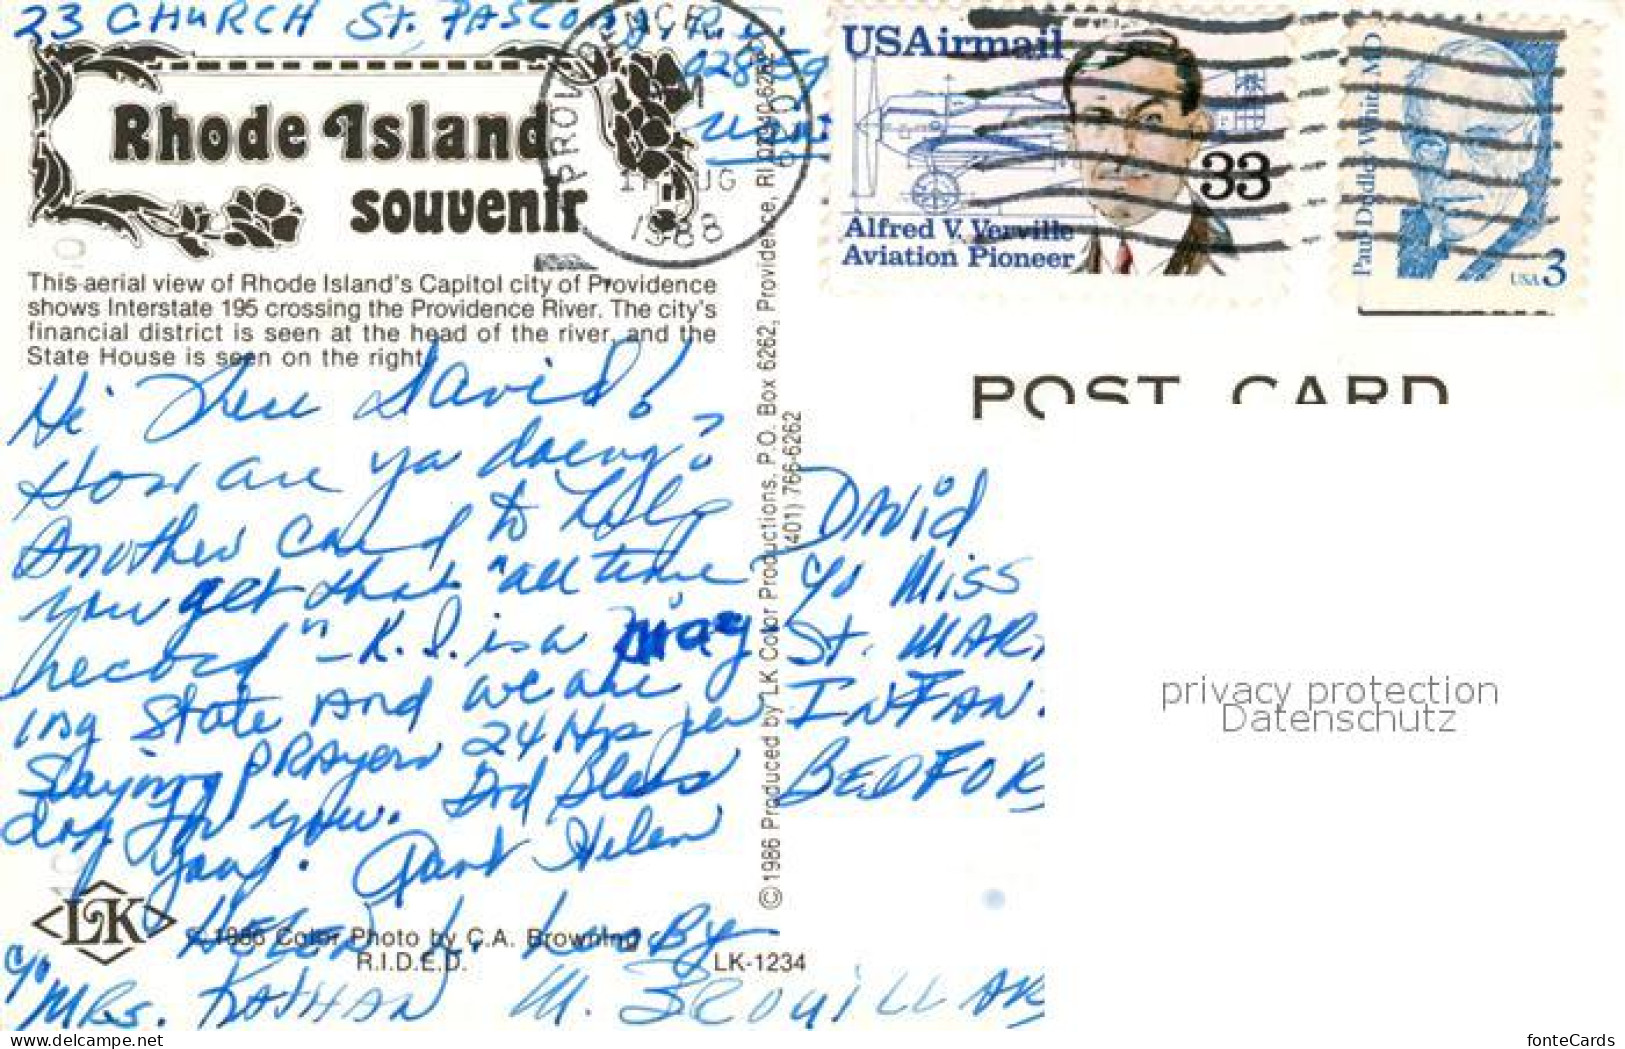 23 CHURCH St. PASCOAG, R.I.
02859
USA
Rhode Island
souvenir
PROVIDENCE
AUG
1988
USAirmail
33
Alfred V. Verville
Aviation Pioneer
Paul Dudley White MD
USA 3
This aerial view of Rhode Island's Capitol city of Providence
shows Interstate 195 crossing the Providence River. The city's
financial district is seen at the head of the river, and the
State House is seen on the right.
POST CARD
Hi Dear David!
How are ya doeng?
Another card to help
you get that "all time
record" - R.I. is a Praying
State And we are
Saying PRAyers 24 Hrs per
day for you. God Bless
you. Aunt Helen
HELEN
By
c/o
MRS.
M.
David
c/o Miss
St. MAR
INFAN
BEDFOR
© 1986 Produced by LK Color Productions, P.O. Box 6262, Providence, RI 02940-6262
(401) 766-6262
LK
© 1986 Color Photo by C.A. Browning
R.I.D.E.D.
LK-1234
privacy protection
Datenschutz
www.ansichtskarten-center.de
fonteCards